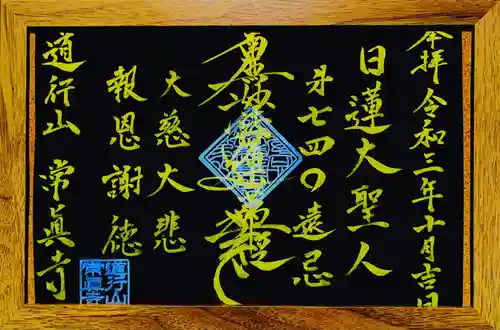 奉拝 令和三年十月吉日
日蓮大聖人
第七四〇遠忌
南無妙法蓮華經
大慈大悲
報恩謝徳
道行山 常眞寺
道行山
常眞寺